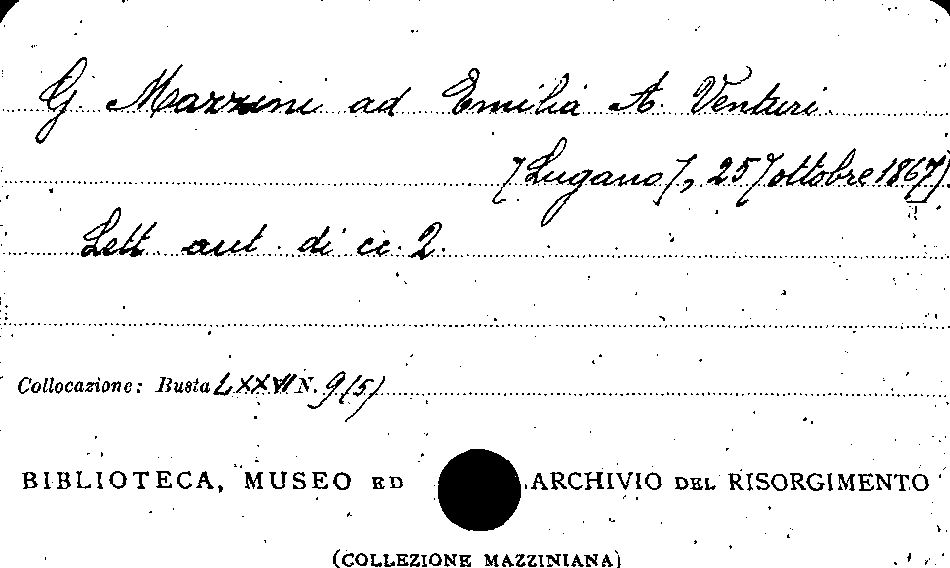 G. Mazzini ad Emilia A. Venturi.
[Lugano], 25 [ottobre 1867]
Lett. aut. di cc. 2.
Collocazione: Busta LXXVI N. 9(5)
BIBLIOTECA, MUSEO ED ARCHIVIO DEL RISORGIMENTO
(COLLEZIONE MAZZINIANA)